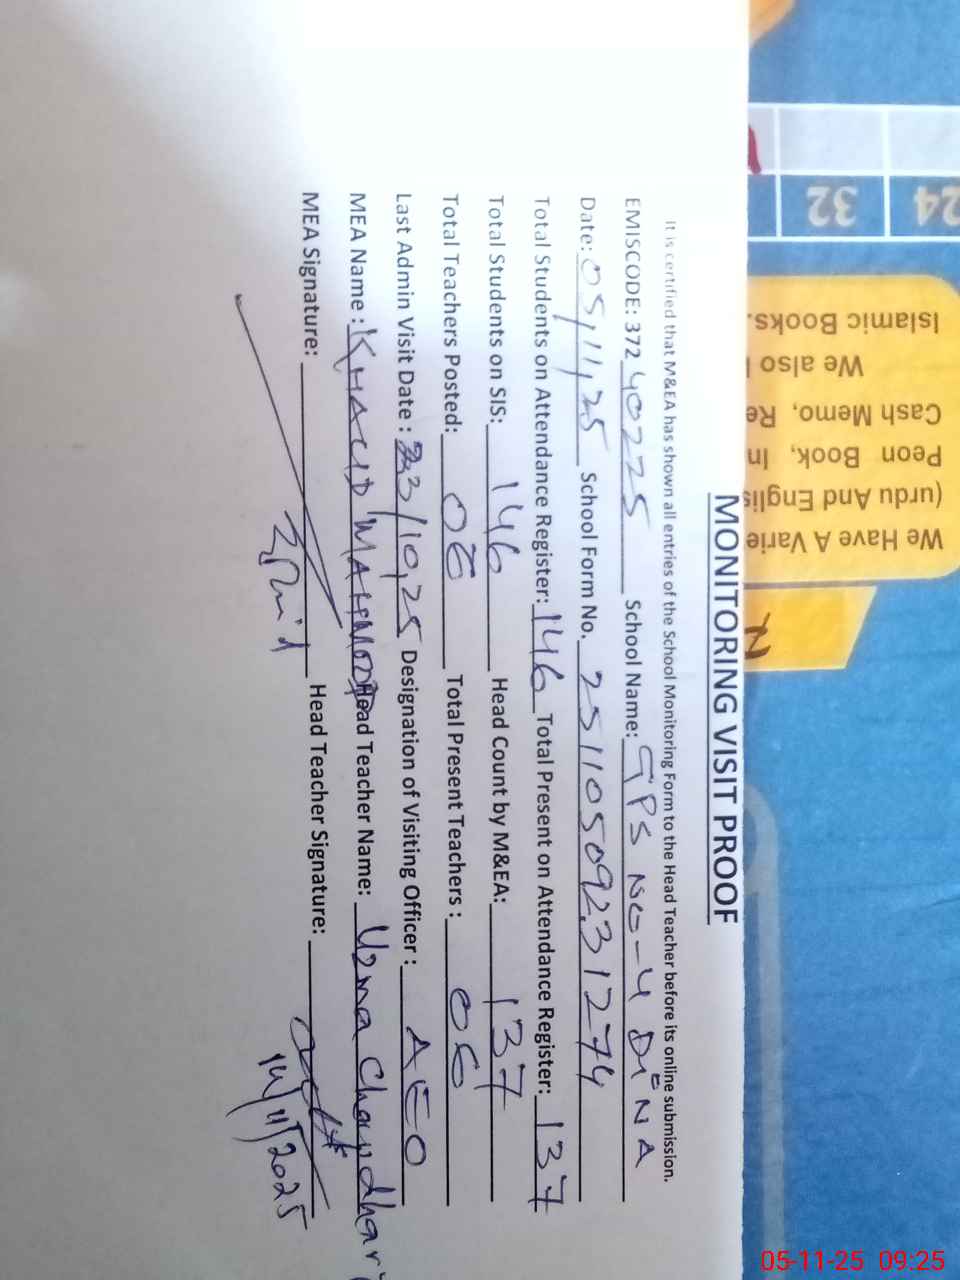 MONITORING VISIT PROOF
It is certified that M&EA has shown all entries of the School Monitoring Form to the Head Teacher before its online submission.
EMISCODE: 372 40225 School Name: GPS NO-4 DINA
Date: 05/11/25 School Form No. 2511050923 1274
Total Students on Attendance Register: 146 Total Present on Attendance Register: 137
Total Students on SIS: 146 Head Count by M&EA: 137
Total Teachers Posted: 08 Total Present Teachers : 06
Last Admin Visit Date : 23/10/25 Designation of Visiting Officer : AEO
MEA Name : KHALID MAHMOOD Head Teacher Name: Uzma Chaudhary
MEA Signature: Head Teacher Signature:
24
32
Islamic Books.
We also
Cash Memo, Re
Peon Book, In
(urdu And Englis
We Have A Varie
05-11-25 09:25